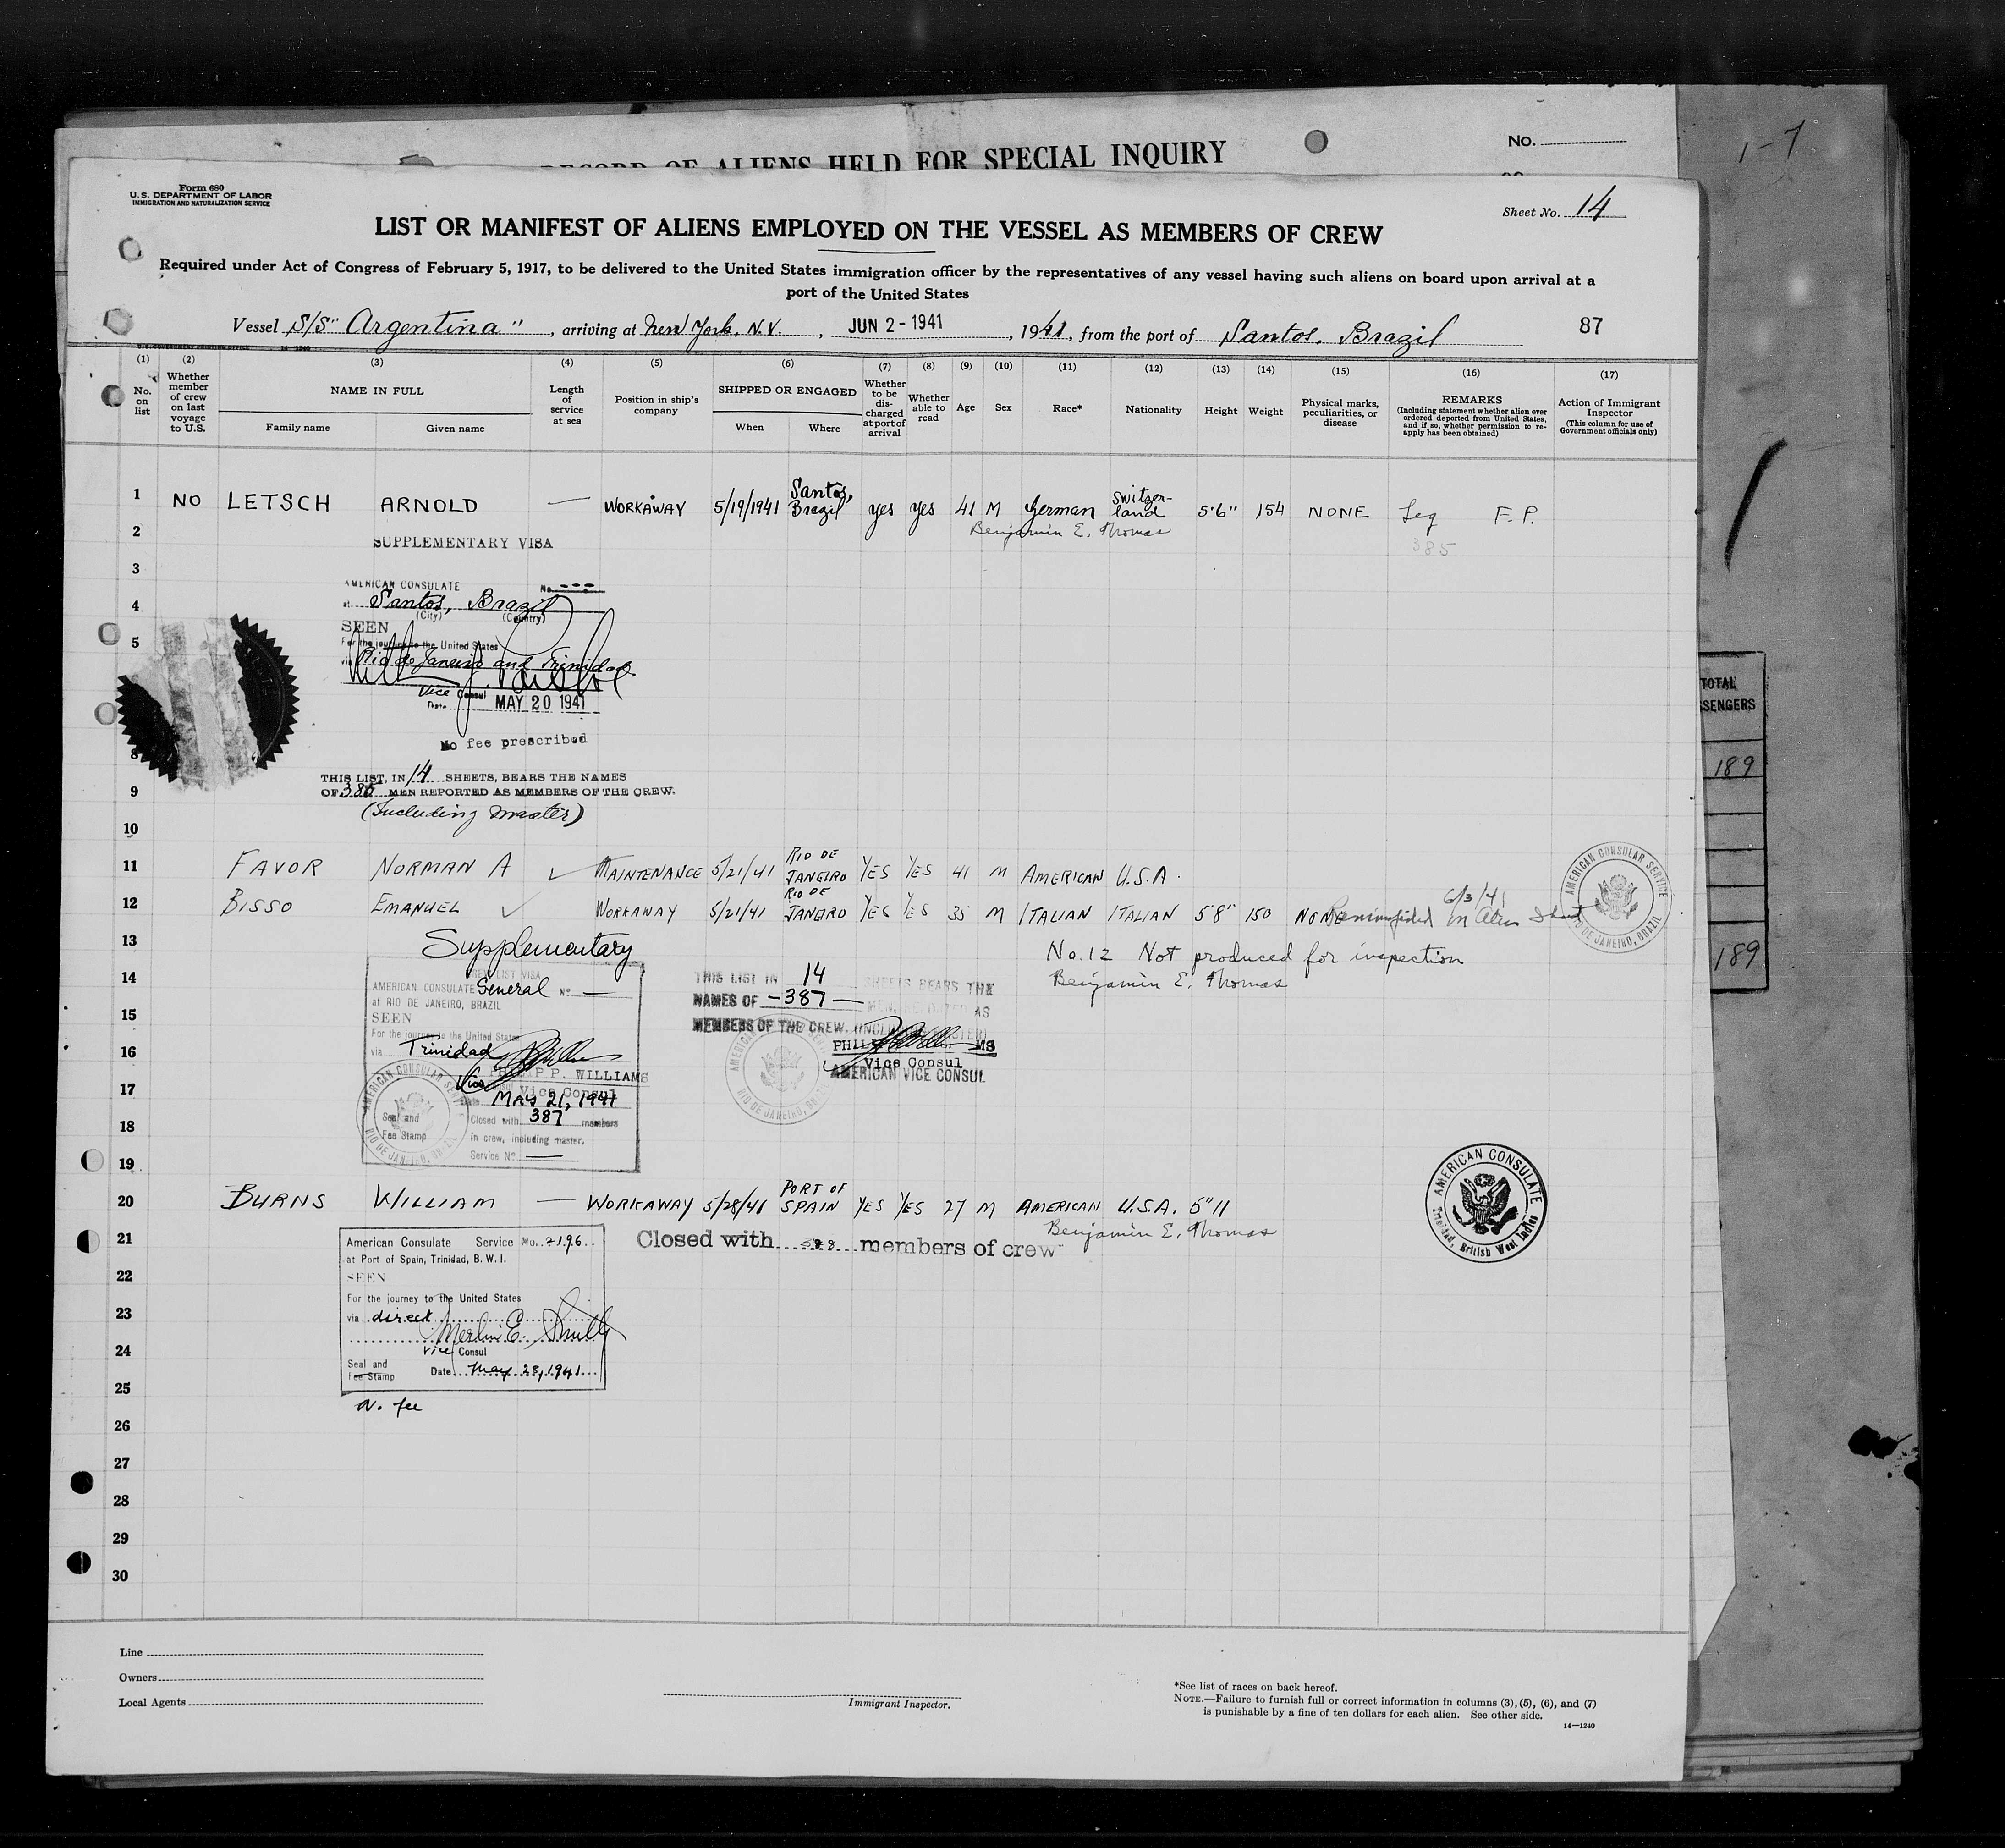 1-7
RECORD OF ALIENS HELD FOR SPECIAL INQUIRY
No.
Form 680
U.S. DEPARTMENT OF LABOR
IMMIGRATION AND NATURALIZATION SERVICE
Sheet No. 14
LIST OR MANIFEST OF ALIENS EMPLOYED ON THE VESSEL AS MEMBERS OF CREW
Required under Act of Congress of February 5, 1917, to be delivered to the United States immigration officer by the representatives of any vessel having such aliens on board upon arrival at a
port of the United States
Vessel S/S "Argentina", arriving at New York, N.Y., JUN 2 - 1941, 1941, from the port of Santos, Brazil 87
(1) (2) (3) (4) (5) (6) (7) (8) (9) (10) (11) (12) (13) (14) (15) (16) (17)
No. on list
Whether member of crew on last voyage to U.S.
NAME IN FULL
Family name Given name
Length of service at sea
Position in ship's company
SHIPPED OR ENGAGED
When Where
Whether to be discharged at port of arrival
Whether able to read
Age
Sex
Race*
Nationality
Height
Weight
Physical marks, peculiarities, or disease
REMARKS
(Including statement whether alien ever ordered deported from United States, and if so, whether permission to reapply has been obtained)
Action of Immigrant Inspector
(This column for use of Government officials only)
1 NO LETSCH ARNOLD — WORKAWAY 5/19/1941 Santos, Brazil yes yes 41 M German Switzerland 5'6" 154 NONE F.P.
2 Benjamin E. Thomas
SUPPLEMENTARY VISA 385
3
AMERICAN CONSULATE No. ---
4 at Santos, Brazil
(City) (Country)
SEEN
5 For the journey to the United States
via Rio de Janeiro and Trinidad
Vice Consul
Date MAY 20 1941
No fee prescribed
8
THIS LIST, IN 14 SHEETS, BEARS THE NAMES
9 OF 385 MEN REPORTED AS MEMBERS OF THE CREW.
(Including master)
10
11 FAVOR NORMAN A MAINTENANCE 5/21/41 RIO DE JANEIRO YES YES 41 M AMERICAN U.S.A.
12 BISSO EMANUEL WORKAWAY 5/21/41 RIO DE JANEIRO YES YES 35 M ITALIAN ITALIAN 5'8" 150 NONE 6/3/41
AMERICAN CONSULAR SERVICE
RIO DE JANEIRO, BRAZIL
13 Supplementary
No. 12 Not produced for inspection
Benjamin E. Thomas
14 CREW LIST VISA
AMERICAN CONSULATE General No. —
at RIO DE JANEIRO, BRAZIL
15 SEEN
For the journey to the United States
16 via Trinidad
PHILIP P. WILLIAMS
17 Vice Consul
Date MAY 21, 1941
Seal and Fee Stamp
18 Closed with 387 members
in crew, including master.
Service No. —
AMERICAN CONSULAR SERVICE
RIO DE JANEIRO, BRAZIL
THIS LIST IN 14 SHEETS BEARS THE
NAMES OF —387— MEN, DATED AS
MEMBERS OF THE CREW. (INCLUDING MASTER)
Vice Consul
AMERICAN VICE CONSUL
AMERICAN CONSULAR SERVICE
RIO DE JANEIRO,
19
20 BURNS WILLIAM — WORKAWAY 5/28/41 PORT OF SPAIN YES YES 27 M AMERICAN U.S.A. 5"11
AMERICAN CONSULATE
Trinidad, British West Indies
Benjamin E. Thomas
21 American Consulate Service No. 2196
at Port of Spain, Trinidad, B.W.I.
Closed with 388 members of crew
22 SEEN
For the journey to the United States
23 via direct
24 Vice Consul
Seal and Fee Stamp
Date May 28, 1941
25
N. fee
26
27
28
29
30
Line
Owners
Local Agents
Immigrant Inspector.
*See list of races on back hereof.
NOTE.—Failure to furnish full or correct information in columns (3), (5), (6), and (7)
is punishable by a fine of ten dollars for each alien. See other side.
14—1240
TOTAL
SSENGERS
189
189